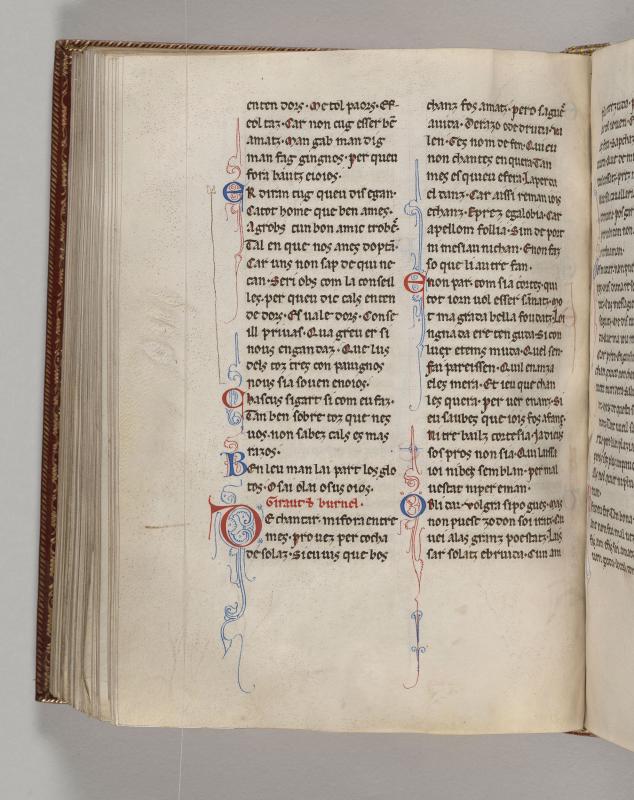 enten dorſ · Me tol paorſ · Eſ
col taz · Car non cug eſſer bē
amatz · Man gab man dig
man fag gingnoſ · per queu
fora bautz eioioſ ·
ER diran tug queu diſ egan ·
Catot home que ben ameſ ·
Agrobſ cun bon amic trobeſ ·
Tal en que noſ aneſ doptā
Car unſ non ſap de qui ne
can · Seri obſ com la conſeil
leſ · per queu die calſ enten
de dorſ · Eſ uale dorſ · Conſe
ill priuaſ · Qua greu er ſi
nouſ engan daz · Que luſ
delſ toz treſ con pauignoſ
nouſ ſia ſouen enoioſ ·
Chaſcuſ ſigart ſi com eu faz ·
Tan ben ſobre toz que neſ
uoſ · non ſabez calſ eſ maſ
razoſ ·
Ben leu man lai part loſ glo
toſ · Oſai olai oſuſ oioſ ·
Giraut d burnel ·
DE chantar · mi fora entre
meſ · pro uez per cocha
de ſolaz · Si euuiſ que beſ
chanz foſ amatz · pero ſaguē
auita · Derazo ode drutu · ui
len · Gez no m de fen · Qui eu
non chanteſ en quera Tan
meſ eſ queu eſera · La per ta
el tanz · Car aiſſi reman ioiſ
echanz · Eprez egalobia · Car
apellom follia · Sim de port
ni meſ iau nichan · E non faz
ſo que li autre fan ·
E non par · tom ſia corteſ · qui
tot iorn uol eſſer ſanatz · mo
t ma grada bella foudatz · Loi
ngnada ere ten guda · Si con
luec etemſ muta · Quel ſen ·
fai pareiſſen · Quil enanza
eleſ mera · Et ieu que chan
leſ quera · per uer enanz · Si
eu ſaubeſ que ioiſ foſ afanſ ·
Ni tre bailz corteſia · Ja dieuſ
ſoſ proſ non ſia · Qui laiſſa
ioi ni beſ ſem blan · per mal
ueſtat ni per eman ·
Obli dar · uolgra ſi pogueſ · maſ
non pueſc zo don ſoi iratz · Cu
uei alaſ granz poeſtatz · Laiſ
ſar ſolatz ebruida · Cun am